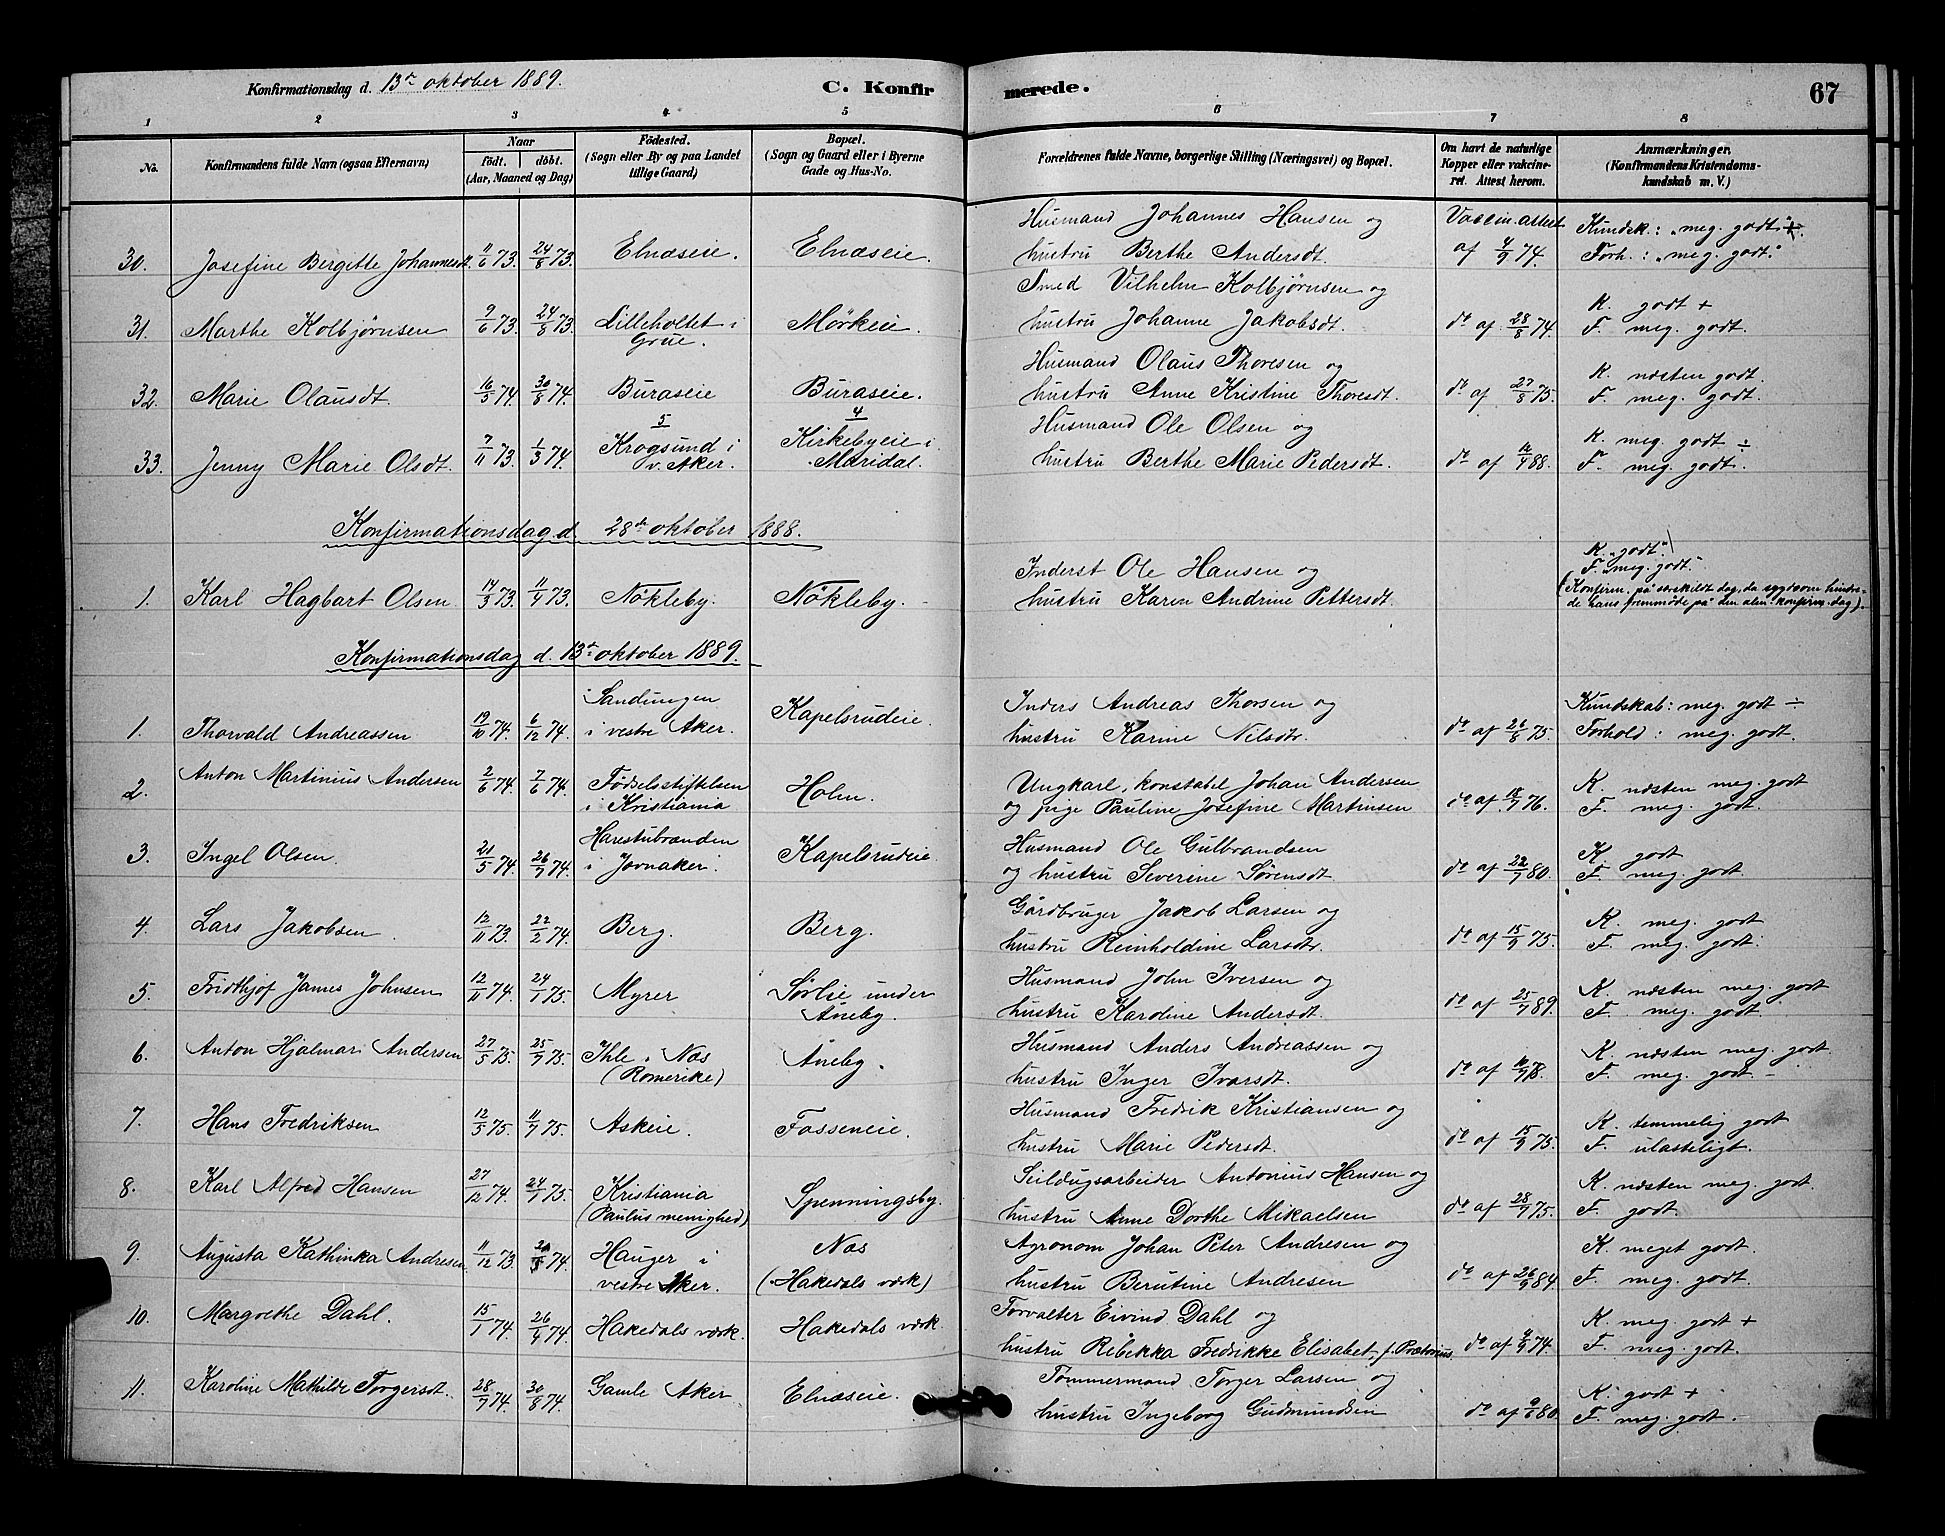 Konfirmationsdag d. 13de oktober 1889.
C. Konfirmerede.
67
1 2 3 4 5 6 7 8
No. Konfirmandens fulde Navn (ogsaa Efternavn)
Naar født. døbt. (Aar, Maaned og Dag)
Fødested. (Sogn eller By og paa Landet tillige Gaard)
Bopæl. (Sogn og Gaard eller i Byerne Gade og Hus-No.
Forældrenes fulde Navne, borgerlige Stilling (Næringsvei) og Bopæl.
Om havt de naturlige Kopper eller vakcineret. Attest herom.
Anmærkninger. (Konfirmandens Kristendomskundskab m. V.)
30. Josefine Bergitte Johannesdt. 11/6 73. 24/8 73. Elnæseie. Elnæseie. Husmand Johannes Hansen og hustru Berthe Andersdt. Vaccin. attest af 4/9 74. Kundsk.: "meg. godt" +. Forh.: "meg. godt."
31. Marthe Kolbjørnsen 9/6 73. 24/8 73. Lilleholtet i Grue. Mørkeie. Smed Vilhelm Kolbjørnsen og hustru Johanne Jakobsdt. do af 28/8 74. K. godt + F. meg. godt.
32. Marie Olausdt. 16/5 74. 30/8 74. Buraseie Buraseie. Husmand Olaus Thoresen og hustru Anne Kristine Thoresdt. do af 27/8 75. K. næsten godt. F. meg. godt.
33. Jenny Marie Olsdt. 7/11 73. 1/3 74. 5 Krogsund i v. Aker. 4 Kirkebyeie i Maridal. Husmand Ole Olsen og hustru Berthe Marie Pedersdt. do af 12/4 88. K. meg. godt ÷ F. meg. godt.
Konfirmationsdag d. 28de oktober 1888.
1. Karl Hagbart Olsen. 14/3 73. 11/4 73. Nökleby. Nökleby. Inderst Ole Hansen og hustru Karen Andrine Pettersdt. K. "godt." F. "meg. godt." (Konfirm. på særskildt dag, da sygdom hindrede hans fremmøde på den alm. konfirm. dag).
Konfirmationsdag d. 13de oktober 1889.
1. Thorvald Andreassen 19/10 74. 6/12 74. Sandungen i vestre Aker. Kapelsrudeie. Inders Andreas Thorsen og hustru Karine Nilsdtr. do af 26/8 75. Kundskab: meg. godt ÷ Forhold: meg. godt.
2. Anton Martinius Andersen 2/6 74. 7/6 74. Fødselsstiftelsen i Kristiania Holm. Ungkarl, konstabel Johan Andersen og pige Pauline Josefine Martinsen do af 18/9 76. K. næsten meg. godt F. meg. godt.
3. Ingel Olsen. 21/5 74. 26/7 74. Harestubranden i Jevnaker. Kapelsrudeie Husmand Ole Gulbrandsen og hustru Severine Sørensdt. do af 22/7 80. K. godt F. meg. godt.
4. Lars Jakobsen 12/11 73. 22/2 74. Berg. Berg. Gårdbruger Jakob Larsen og hustru Reinholdine Larsdtr. do af 15/9 75. K. meg. godt F. meg. godt.
5. Fridthjof James Johnsen 12/11 74. 24/1 75. Myrer Sørlie under Åneby. Husmand John Iversen og hustru Karoline Andersdt. do af 25/7 89. K. næsten meg. godt F. meg. godt.
6. Anton Hjalmar Andersen 27/5 75. 25/7 75. Ihle i Næs (Romerike) Åneby. Husmand Anders Andreassen og hustru Inger Ivarsdt. do af 10/9 78. K. næsten meg. godt. F. meg. godt.
7. Hans Fredriksen 12/5 75. 11/7 75. Askeie. Fosseneie. Husmand Fredrik Kristiansen og hustru Marie Pedersdt. do af 15/9 75. K. temmelig godt F. ulasteligt.
8. Karl Alfred Hansen 27/12 74. 24/1 75. Kristiania (Paulus menighed) Spenningsby. Seildugsarbeider Antonius Hansen og hustru Anne Dorthe Mikaelsen do af 28/9 75. K. næsten meg. godt. F. godt.
9. Augusta Kathinka Andresen. 11/12 73. 74. Hauger i vestre Aker. Næs (Hakedals værk) Agronom Johan Peter Andresen og hustru Berntine Andresen do af 26/9 84. K. meget godt. F. meg. godt.
10. Margrethe Dahl. 15/1 74. 26/4 74. Hakedals værk. Hakedals værk Forvalter Eivind Dahl og hustru Rebekka Fredrikke Elisabet f. Prætorius do af 4/9 74. K. meg. godt + F. meg. godt.
11. Karoline Mathilde Torgersdt. 28/7 74. 30/8 74. Gamle Aker Elnæseie. Tømmermand Torger Larsen og hustru Ingeborg Gudmundsen do af 9/6 80. K. godt + F. meg. godt.